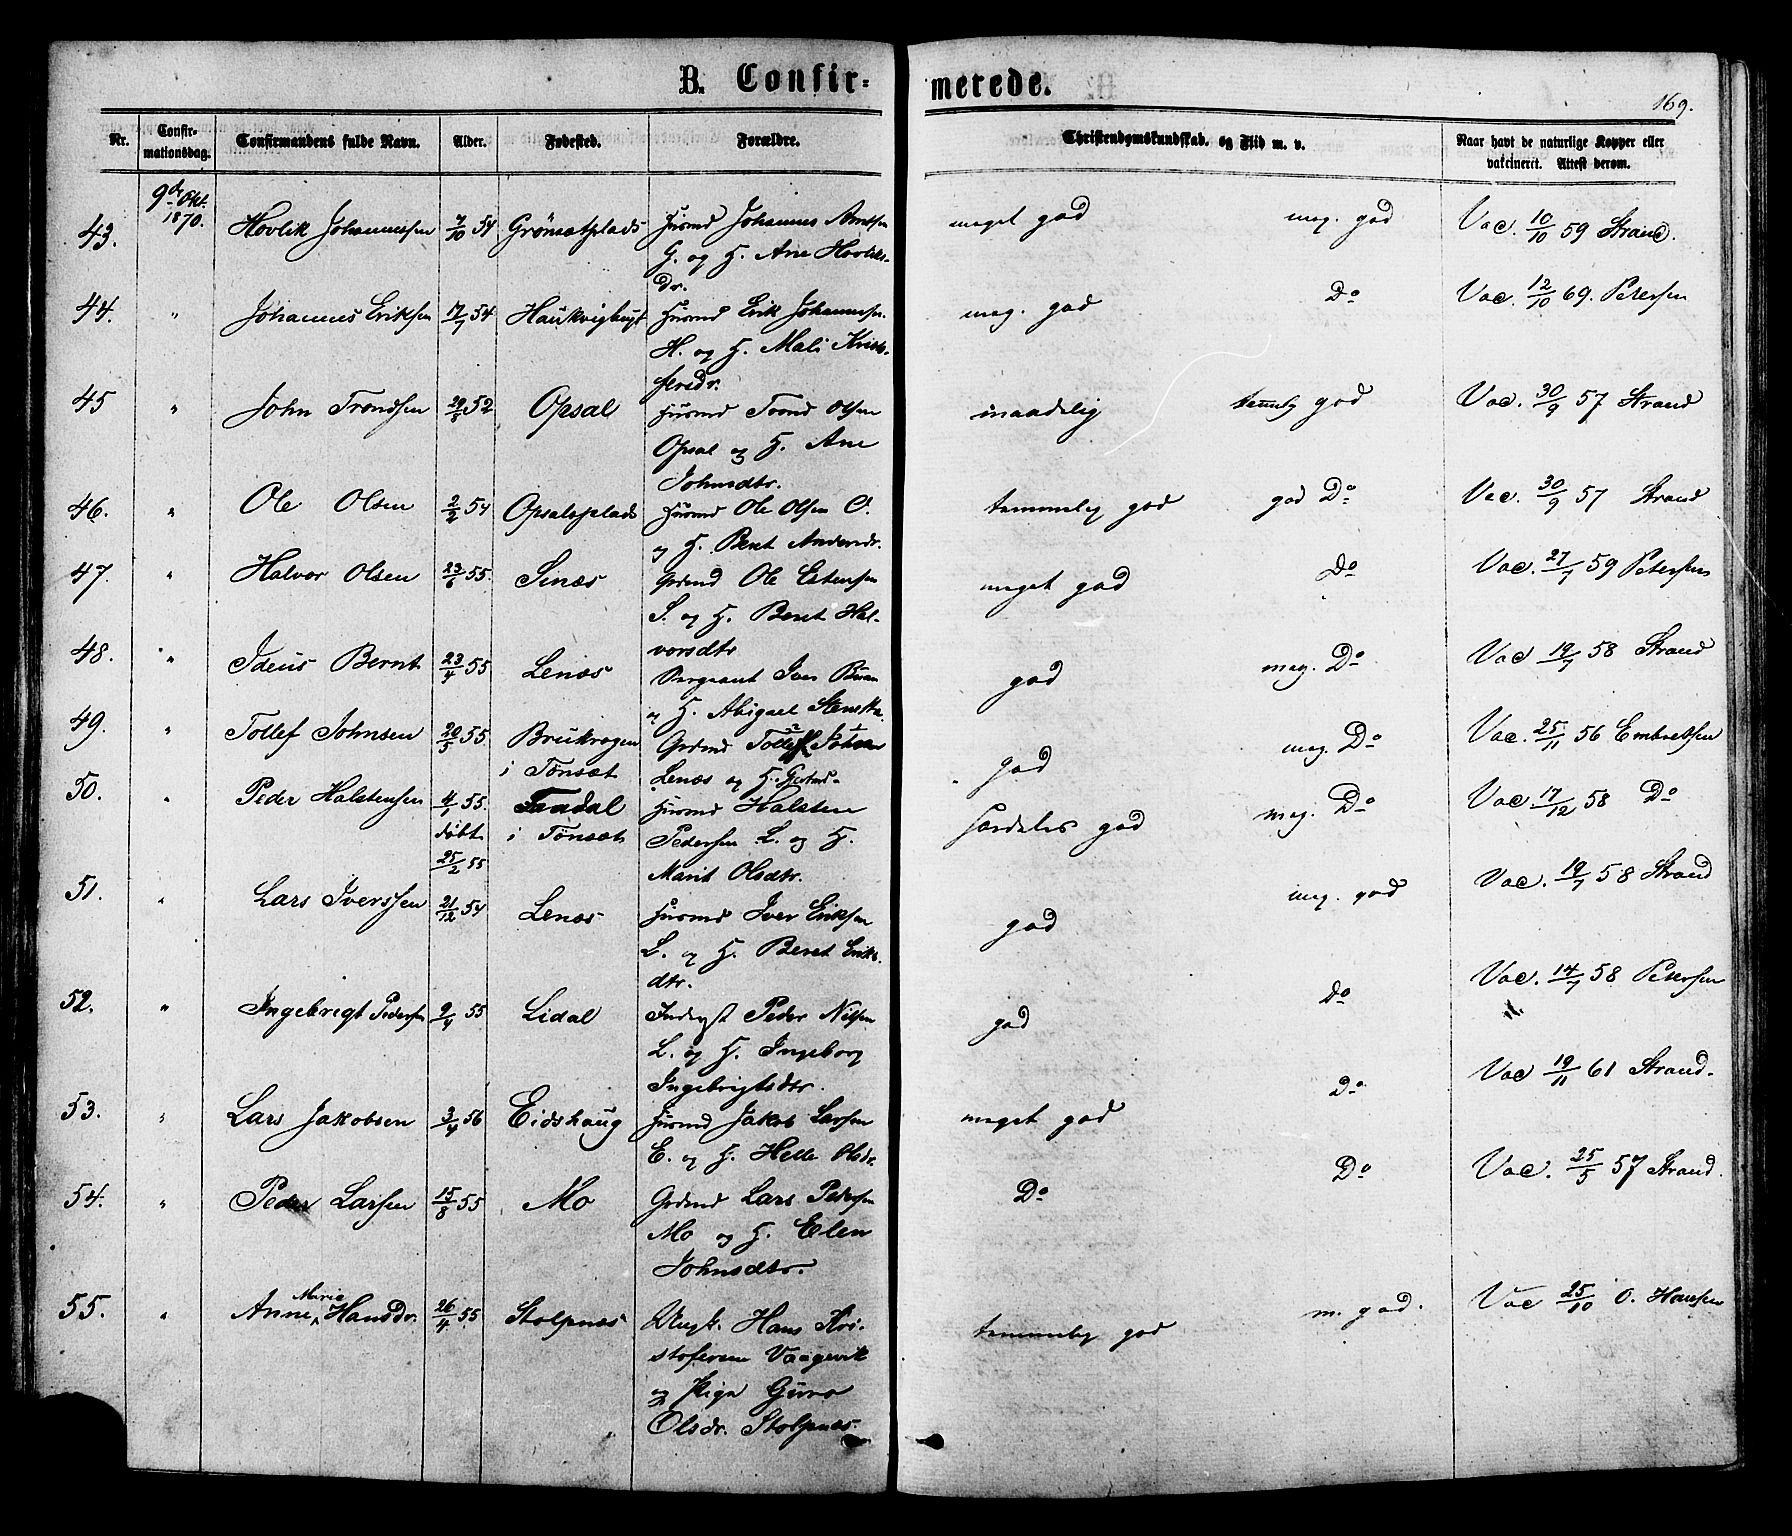 B. Confirmerede.
169.
Nr. Confirmationsdag. Confirmandens fulde Navn. Alder. Fødested. Forældre. Christendomskundskab, og Flid m. v. Naar havt de naturlige Kopper eller vakcineret. Attest derom.
9de Okt. 1870.
43. Hovlik Johannessen 7/10 54 Grönsætplads Husmd Johannes Arntsen meget god meg. god Vac. 10/10 59 Strand.
G. og H. Ane
dr.
44. " Johannes Eriksen 17/7 54 Husmd Erik Johannessen meg. god Do Vac. 12/10 69. Petersen
H. og H. Mali Kristo-
fersdr.
45 " John Trondsen 29/5 52 Opsal Husmd Trond Olsen maadelig temmelig god Vac. 30/9 57 Strand
Opsal og H. Ane
Johnsdtr.
46. " Ole Olsen 2/2 54 Opsalsplads Husmd Ole Olsen O. temmelig god god Do Vac. 30/9 57 Strand
og H. Beret Andersdr.
47. " Halvor Olsen 23/6 55. Senæs Grdmd Ole Estensen meget god Do Vac. 27/7 59 Petersen
S. og H. Beret Hal-
vorsdtr
48. " Ideus Bernt 23/4 55 Lenæs Sergeant Iver god meg. Do Vac 19/7 58 Strand
og H. Abigael
49. " Tollef Johnsen 20/5 55 Brukrogen Grdmd Tollef Johnsen god meg. Do Vac. 25/11 56 Embretsen
i Tönsæt Lenæs og H.
50. " Peder Halstensen 4/1 55. Husmd Halsten særdeles god meg. Do Vac 17/12 58 Do
döbt i Tönsæt Pedersen L. og H.
25/2 55 Marit Olsdtr.
51. " Lars Iverssen 21/12 54 Lenæs Husmd Iver Eriksen god meg. god Vac. 19/7 58 Strand
L. og H. Beret Eriks-
dtr.
52. " Ingebrigt Pedersen 2/4 55 Lidal Inderst Peder Nilsen god Do Vac. 14/7 58 Petersen
L. og H. Ingeborg
Ingebrigtsdtr.
53. " Lars Jakobsen 3/4 56 Eidshaug Husmd Jakob Larsen meget god Do Vac 19/11 61 Strand.
E. og H. Helle Olsdr.
54. " Peder Larsen 15/8 55 Mo Grdmd Lars Pedersen Do Do Vac. 25/5 57 Strand.
Mo og H. Elen
Johnsdtr.
55. " Anne Marie Hansdr. 26/4 55 Stolpnæs Ungk. Hans Kri- temmelig god m. god. Vac 25/10 O. Hansen
stofersen Vaagevik
og Pige Guro
Olsdr. Stolpnæs.